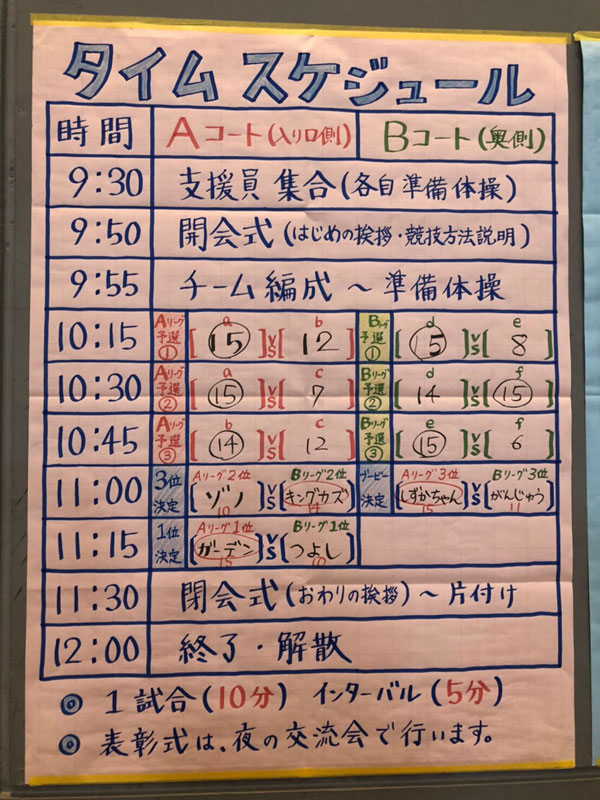 タイム スケジュール
時間 Aコート(入り口側) Bコート(奥側)
9:30 支援員 集合(各自準備体操)
9:50 開会式(はじめの挨拶・競技方法説明)
9:55 チーム編成 ~ 準備体操
10:15 Aリーグ予選① [a 15] VS [b 12] Bリーグ予選① [d 15] VS [e 8]
10:30 Aリーグ予選② [a 15] VS [c 7] Bリーグ予選② [d 14] VS [f 15]
10:45 Aリーグ予選③ [b 14] VS [c 12] Bリーグ予選③ [e 15] VS [f 6]
11:00 3位決定 [Aリーグ2位 ゾノ 10] VS [Bリーグ2位 キングカズ 14] ブービー決定 [Aリーグ3位 しずかちゃん 15] VS [Bリーグ3位 がんじゅう 11]
11:15 1位決定 [Aリーグ1位 ガーデン 15] VS [Bリーグ1位 つよし 10]
11:30 閉会式(おわりの挨拶)~片付け
12:00 終了・解散
◎ 1試合(10分) インターバル(5分)
◎ 表彰式は、夜の交流会で行います。